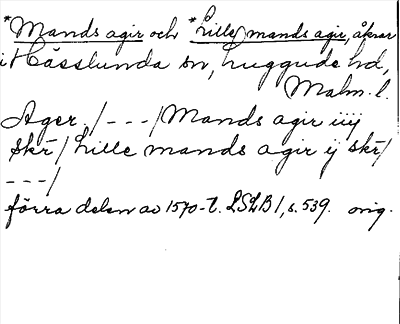 *Mands agir och *Lille mands agir, åkrar
i Hässlunda sn, Luggude hd,
Malm. l.
Ager. /---/ Mands agir iiij
skr/ Lille mands agir ij skr/
---/
förra delen av 1570-t. LSLB 1, s. 539. orig.